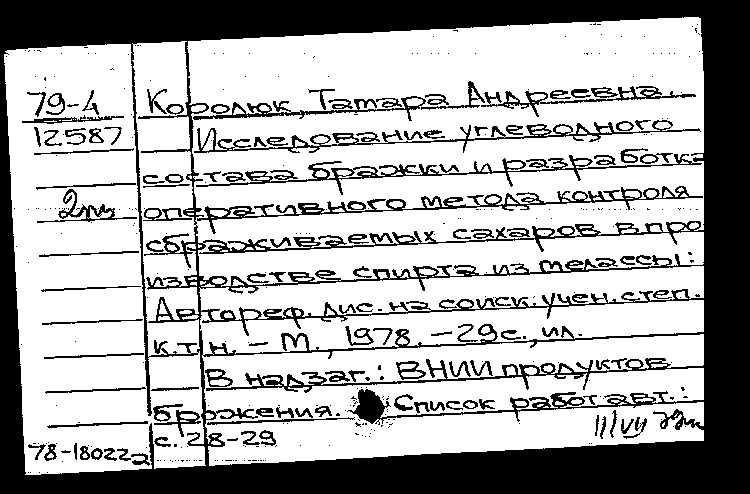 79-4 Королюк, Тамара Андреевна.
12587 Исследование углеводного
состава бражки и разработка
2пз оперативного метода контроля
сбраживаемых сахаров в про
изводстве спирта из мелассы:
Автореф. дис. на соиск. учен. степ.
к.т.н. – М., 1978. – 29с., ил.
В надзаг.: ВНИИ продуктов
брожения. Список работ авт.:
с. 28-29
78-18022